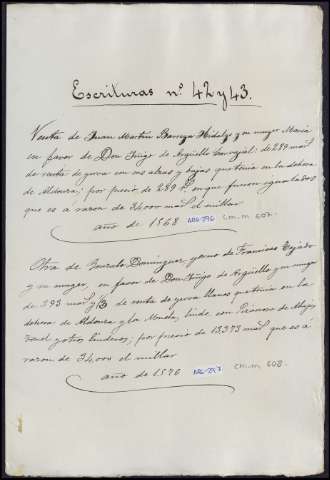 Escrituras nº 42 y 43.
Venta de Juan Martín Hidalgo y su muger María
en favor de Don Iñigo de Argüello Carvajal: de 289 mrs
de renta de yerva en sus altas y bajas que tenia en la dehesa
de Aldaura; por precio de 289 en que fueron igualados
que es á razon de 34.000 mrs el millar
año de 1568 CM.M 607.
Otra de Gonzalo Dominguez, yerno de Francisco Tejado
y su muger, en favor de Don Iñigo de Argüello y su muger
de 393 mrs y de renta de yerva llanos que tenia en la
dehesa de Aldaura y la Moheda, linde, con
y otros linderos; por precio de 13.373 mrs que es á
razon de 34.000 el millar
año de 1576 CM.M 608.